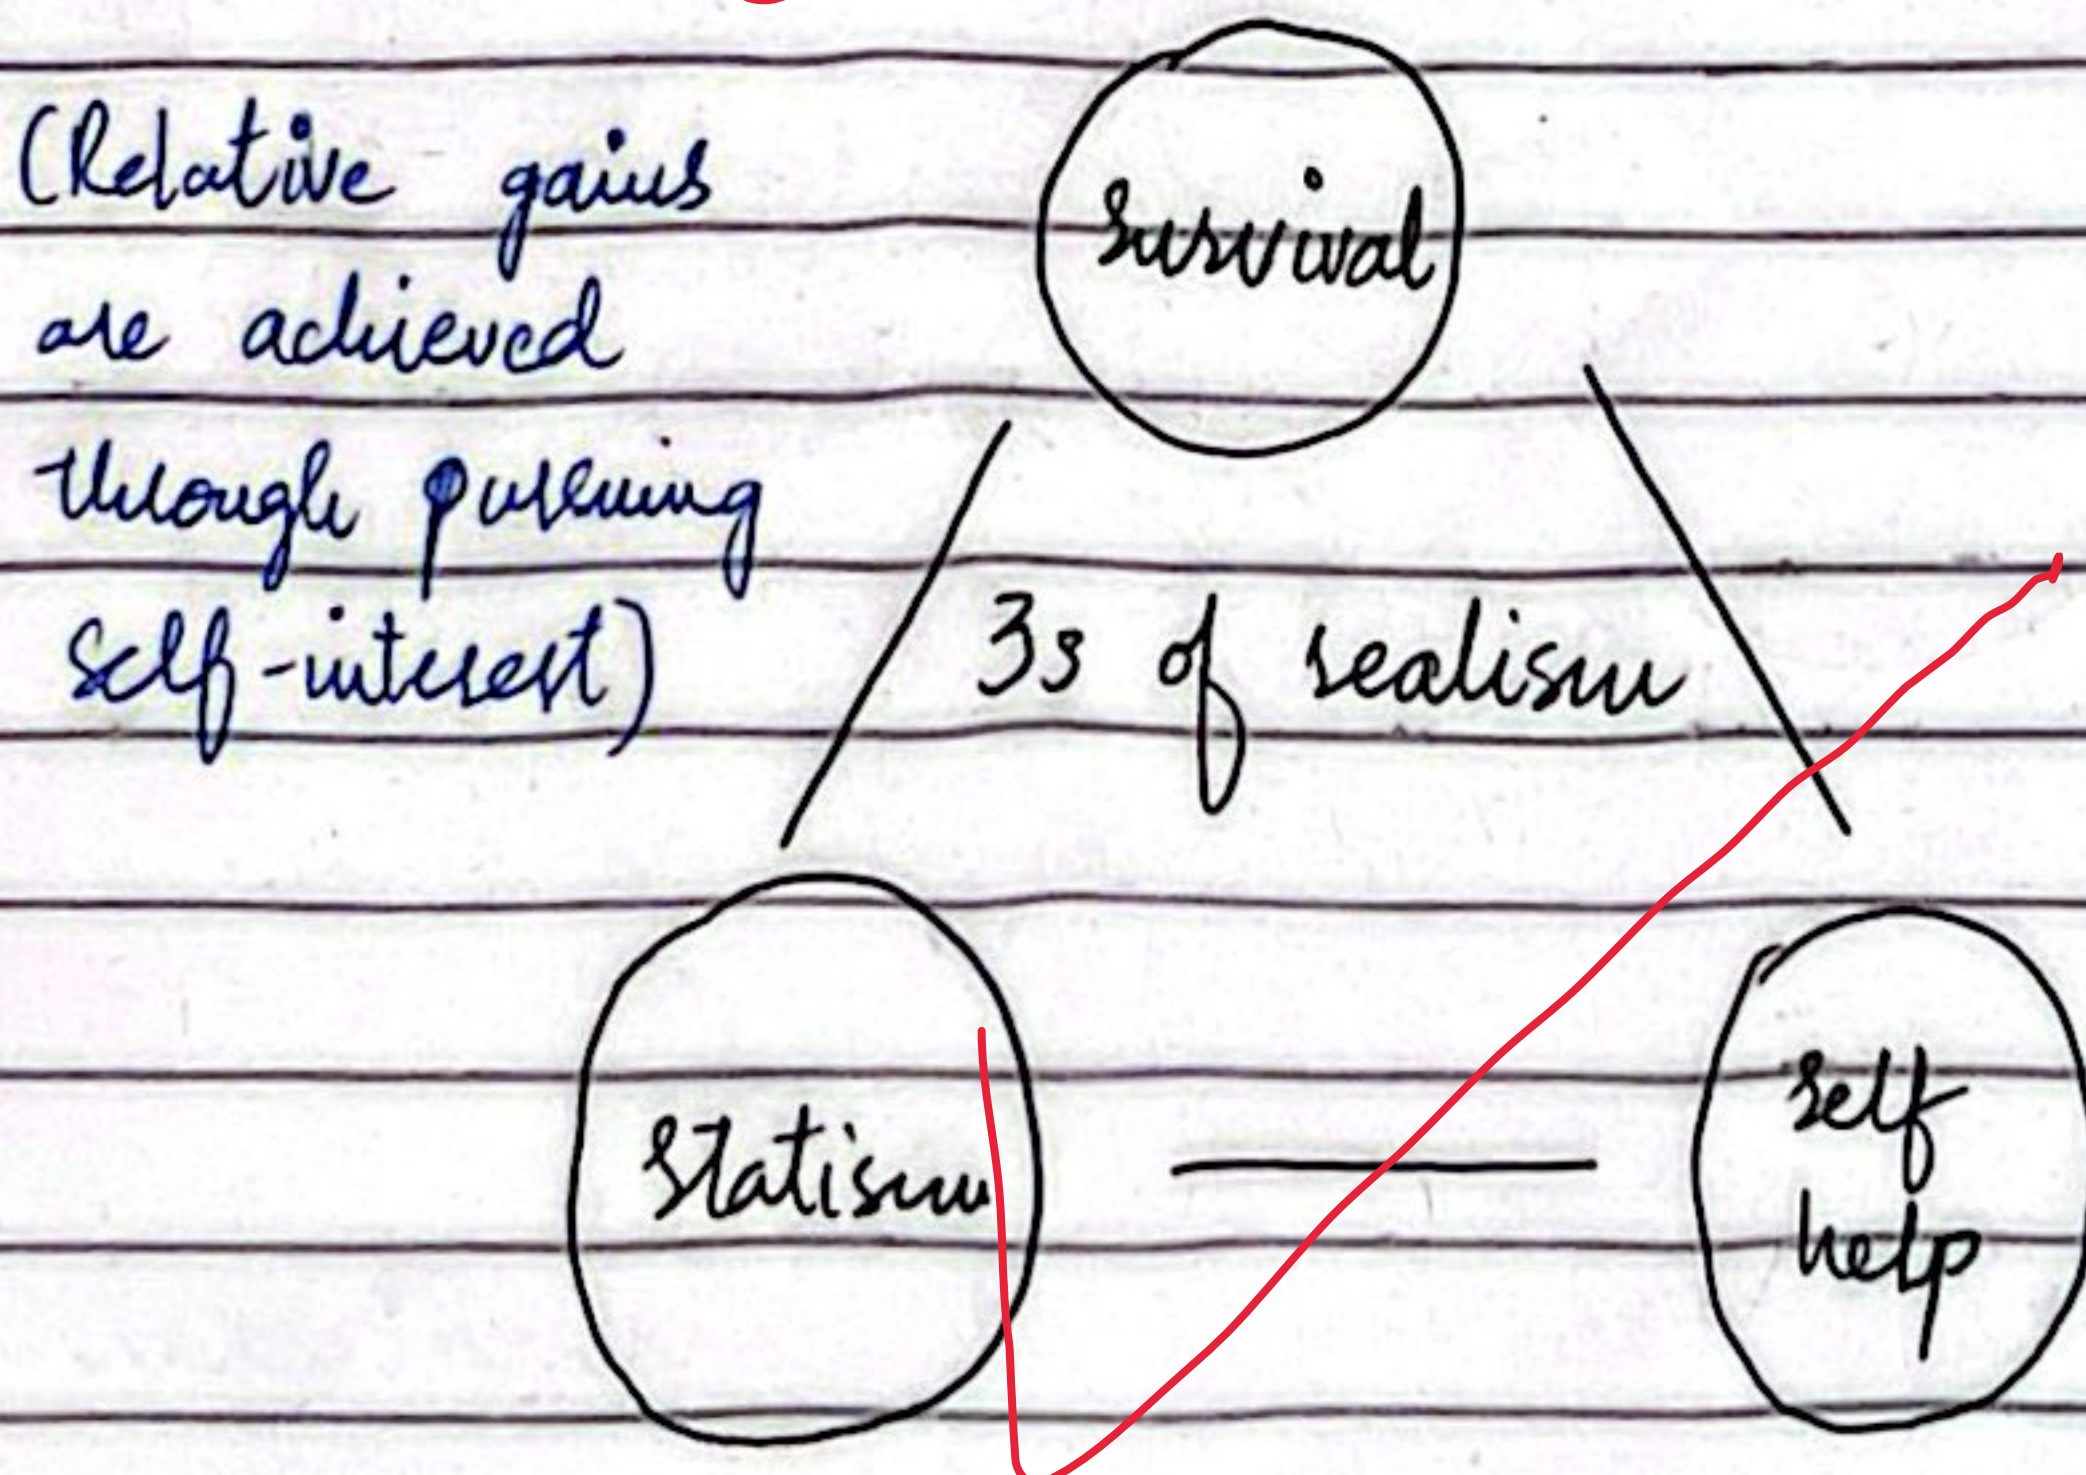 (Relative gains
are achieved
through pursuing
self-interest)
survival
3s of realism
statism
self
help